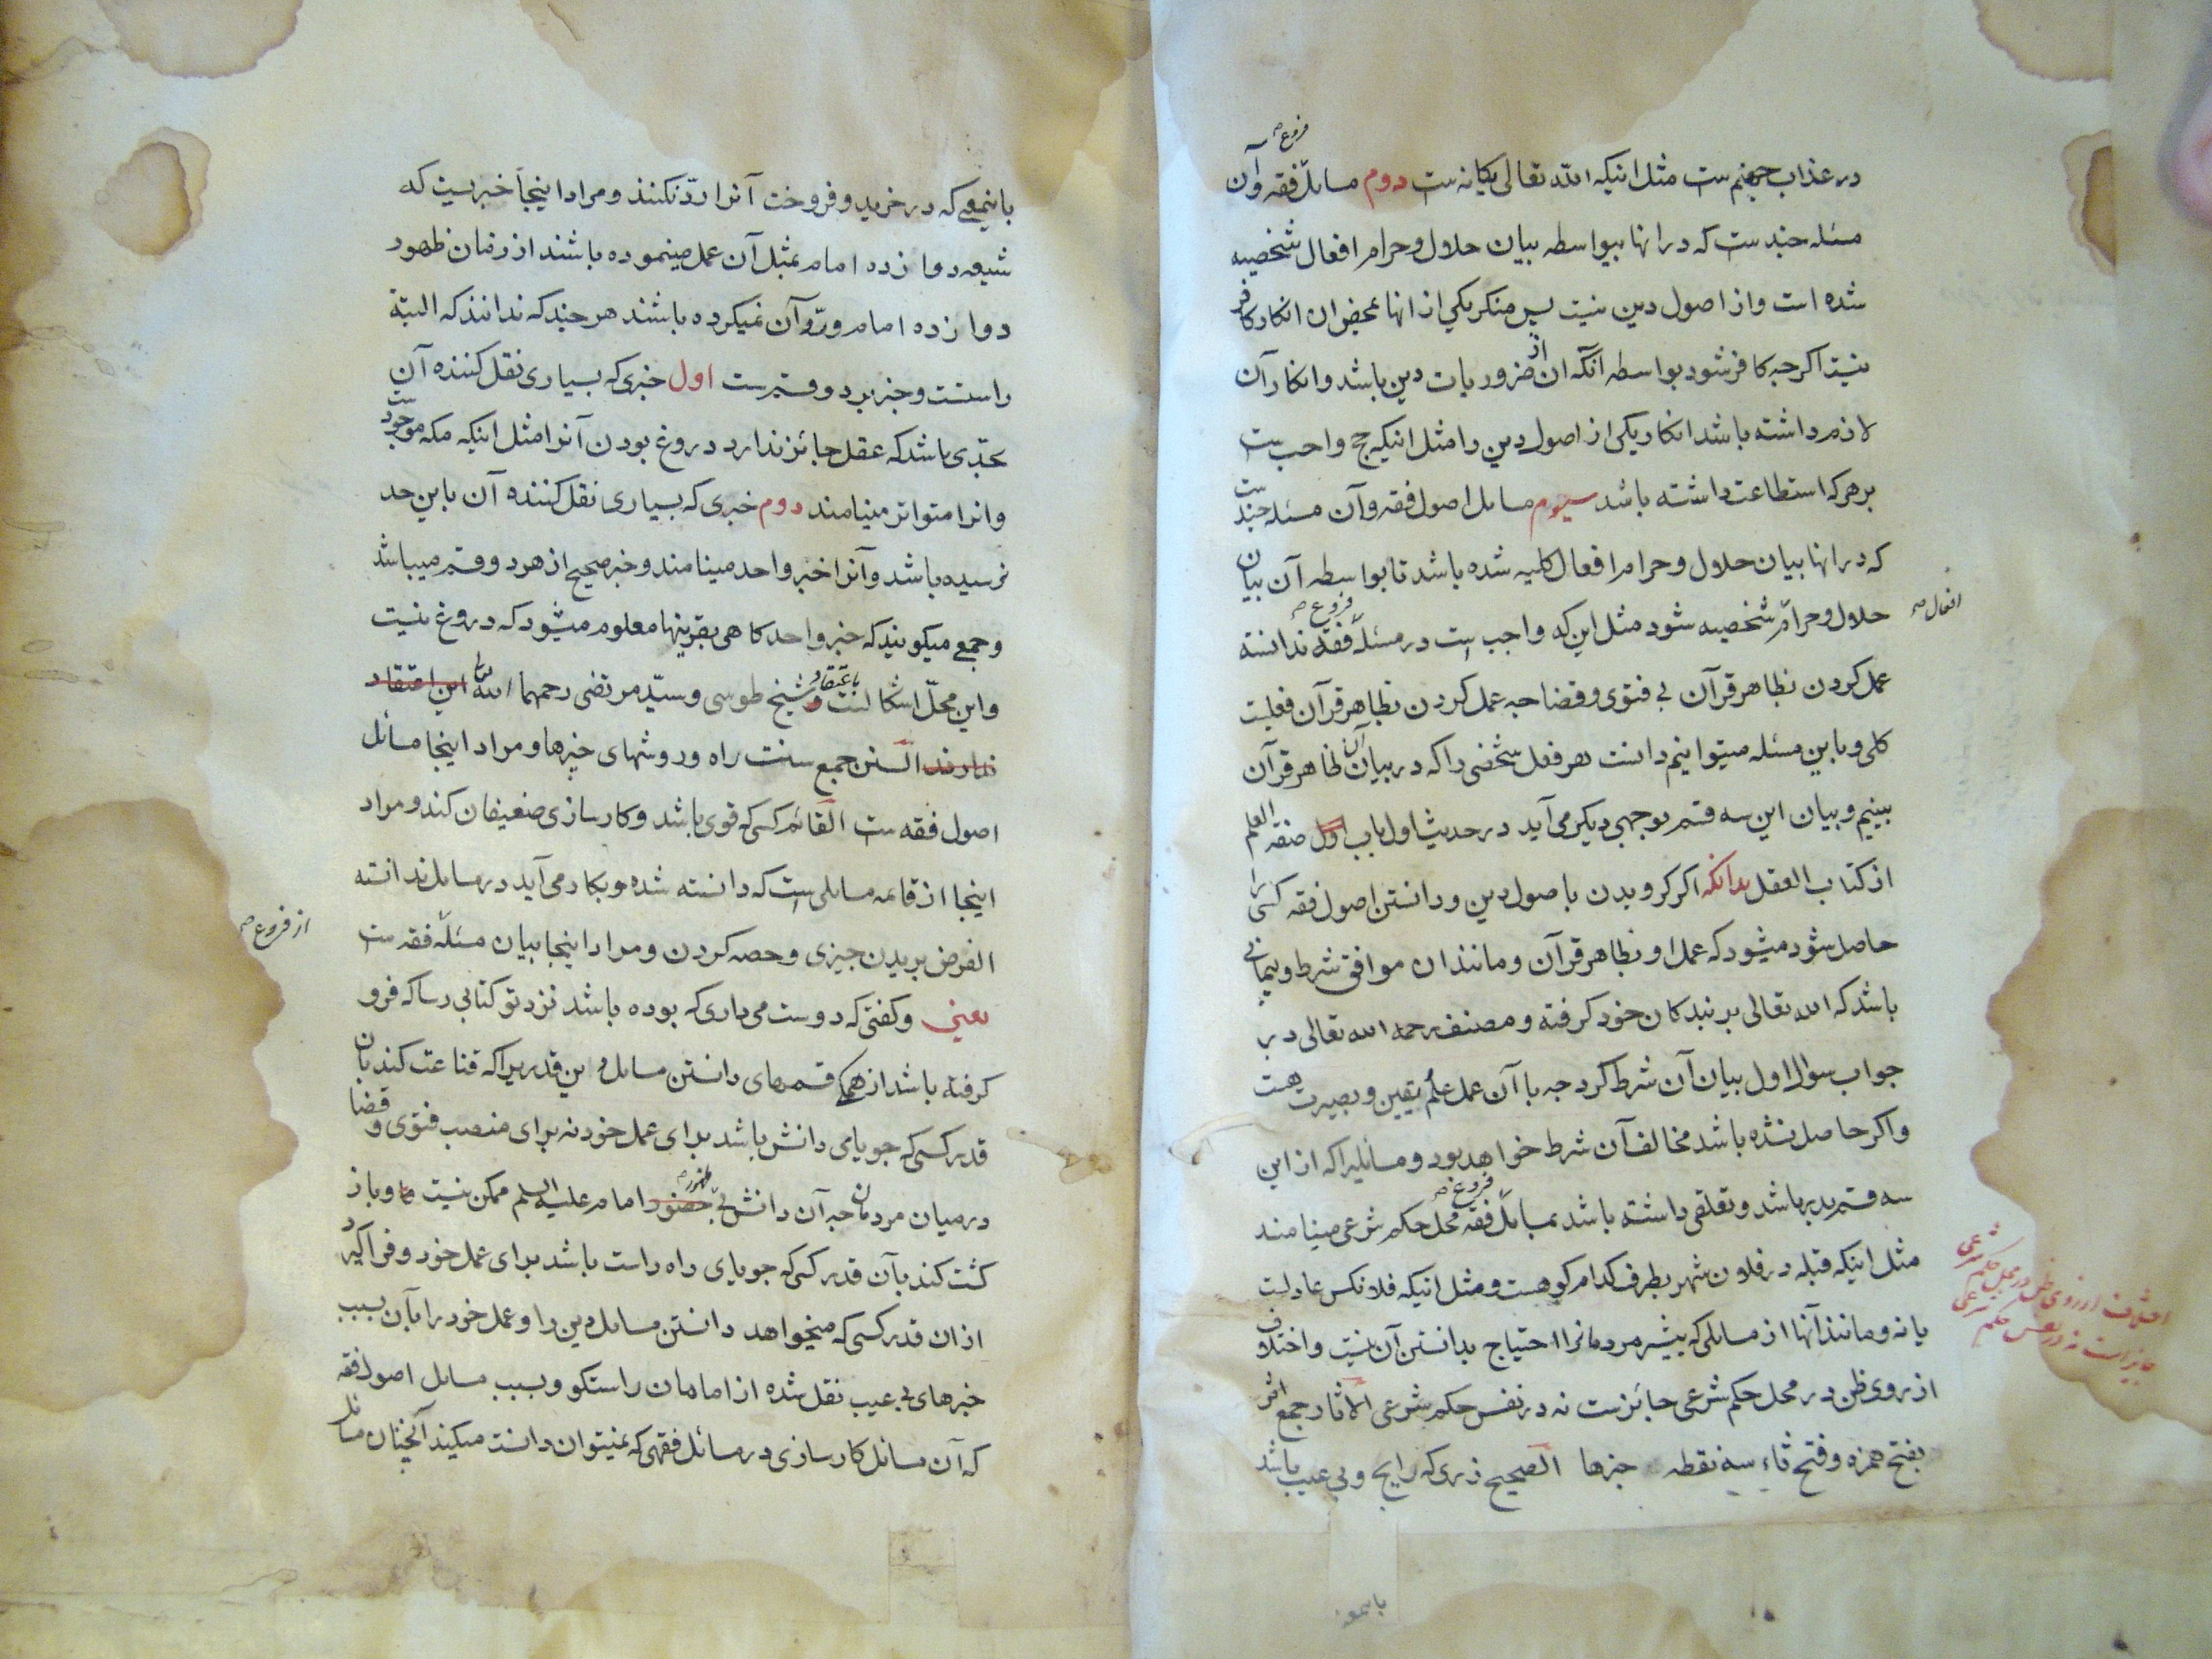 فروع صح
در عذاب جهنم ست مثل اینکه الله تعالی یکانه ست دوم مسایل فقه و آن
مسئله چند ست که در انها بیواسطه بیان حلال و حرام افعال شخصیه
شده است و از اصول دین نیست پس منکر یکی از انها بمحض ان انکار کافر
نیست اکرچه کافر شود بواسطه آنکه ان از ضروریات دین باشد و انکار آن
لازم داشته باشد انکار یکی از اصول دین را مثل اینکه حج واجب ست
بر هر که استطاعت داشته باشد سیوم مسایل اصول فقه و آن مسئله چند ست
که در انها بیان حلال و حرام افعال کلیه شده باشد تا بواسطه آن بیان
حلال و حرام شخصیه شود مثل این که واجب ست در مسئله فقه ندانسته
افعال صح
فروع صح
عمل کردن بظاهر قرآن بی فتوی و قضا چه عمل کردن بظاهر قرآن فعلیت
کلی و باین مسئله میتوانیم دانست هر فعل شخصی را که در بیان آن ظاهر قرآن
بینیم و بیان این سه قسم بوجهی دیکر می آید در حدیث اول باب اول صفة العلم
از کتاب العقل بدانکه اکر کرویدن باصول دین و دانستن اصول فقه کسی را
حاصل شود میشود که عمل او بظاهر قرآن و مانند ان موافق شرط و پیمانی
باشد که الله تعالی بر بندکان خود کرفته و مصنف رحمه الله تعالی در
جواب سؤال اول بیان آن شرط کرد چه با آن عمل علم یقین و بصیرت هست
و اکر حاصل نشده باشد مخالف آن شرط خواهد بود و مسایلیرا که از این
سه قسم بدر باشد و تعلقی داشته باشد بمسایل فقه محل حکم شرعی مینامند
فروع صح
مثل اینکه قبله در فلان شهر بطرف کدام کوهست و مثل اینکه فلانکس عادلست
یا نه و مانند آنها از مسایلی که بیشتر مردمانرا احتیاج بدانستن آن نیست و اختلاف
از روی ظن در محل حکم شرعی جائز ست نه در نفس حکم شرعی الآثار جمع اثر
بفتح همزه و فتح ثاء سه نقطه خبرها الصحیح زری که رایج و بی عیب باشد
اختلاف از روی ظن در محل حکم شرعی
جایز است نه در نفس حکم شرعی
باینمعنی
باینمعنی که در خرید و فروخت آنرا ردّ نکنند و مراد اینجا خبریست که
شیعه دوازده امام بمثل آن عمل مینموده باشند از زمان ظهور
دوازده امام و ردّ آن نمیکرده باشند هر چند که ندانند که البتة
راستست و خبر بر دو قسم ست اول خبری که بسیاری نقل کننده آن
بحدّی باشد که عقل جائز ندارد دروغ بودن آنرا مثل اینکه مکه موجود ست
و انرا متواتر مینامند دوم خبری که بسیاری نقل کننده آن باین حد
نرسیده باشد و آنرا خبر واحد مینامند و خبر صحیح از هر دو قسم میباشد
و جمعی میکویند که خبر واحد کاهی بقرینها معلوم میشود که دروغ نیست
و این محلّ اشکالست باعتقاد شیخ طوسی و سیّد مرتضی رحمهما الله این اعتقاد
ندارند السنن جمع سنت راه و روشهای خبرها و مراد اینجا مسائل
اصول فقه ست القائم کسی که قوی باشد و کارسازی ضعیفان کند و مراد
اینجا از قائمه مسایلی است که دانسته شده و بکار می آید در مسایل ندانسته
الفرض بریدن چیزی و حصه کردن و مراد اینجا بیان مسئله فقه ست
از فروع صح
یعنی و کفتی که دوست می داری که بوده باشد نزد تو کتابی رسا که فرو
کرفته باشد از همکی قسمهای دانستن مسایل دین قدریرا که قناعت کند بان
قدر کسی که جویای دانش باشد برای عمل خود نه برای منصب فتوی و قضا
در میان مردمان چه آن دانش بی حضور امام علیه السلم ممکن نیست و باز
ظهور صح
کشت کند بآن قدر کسی که جویای راه راست باشد برای عمل خود و فرا کیرد
از ان قدر کسی که میخواهد دانستن مسایل دین را و عمل خود را بآن بسبب
خبرهای بی عیب نقل شده از امامان راستکو و بسبب مسایل اصول فقه
که آن مسائل کارسازی در مسائل فقهی که نمیتوان دانست میکند آنچنان مسائل